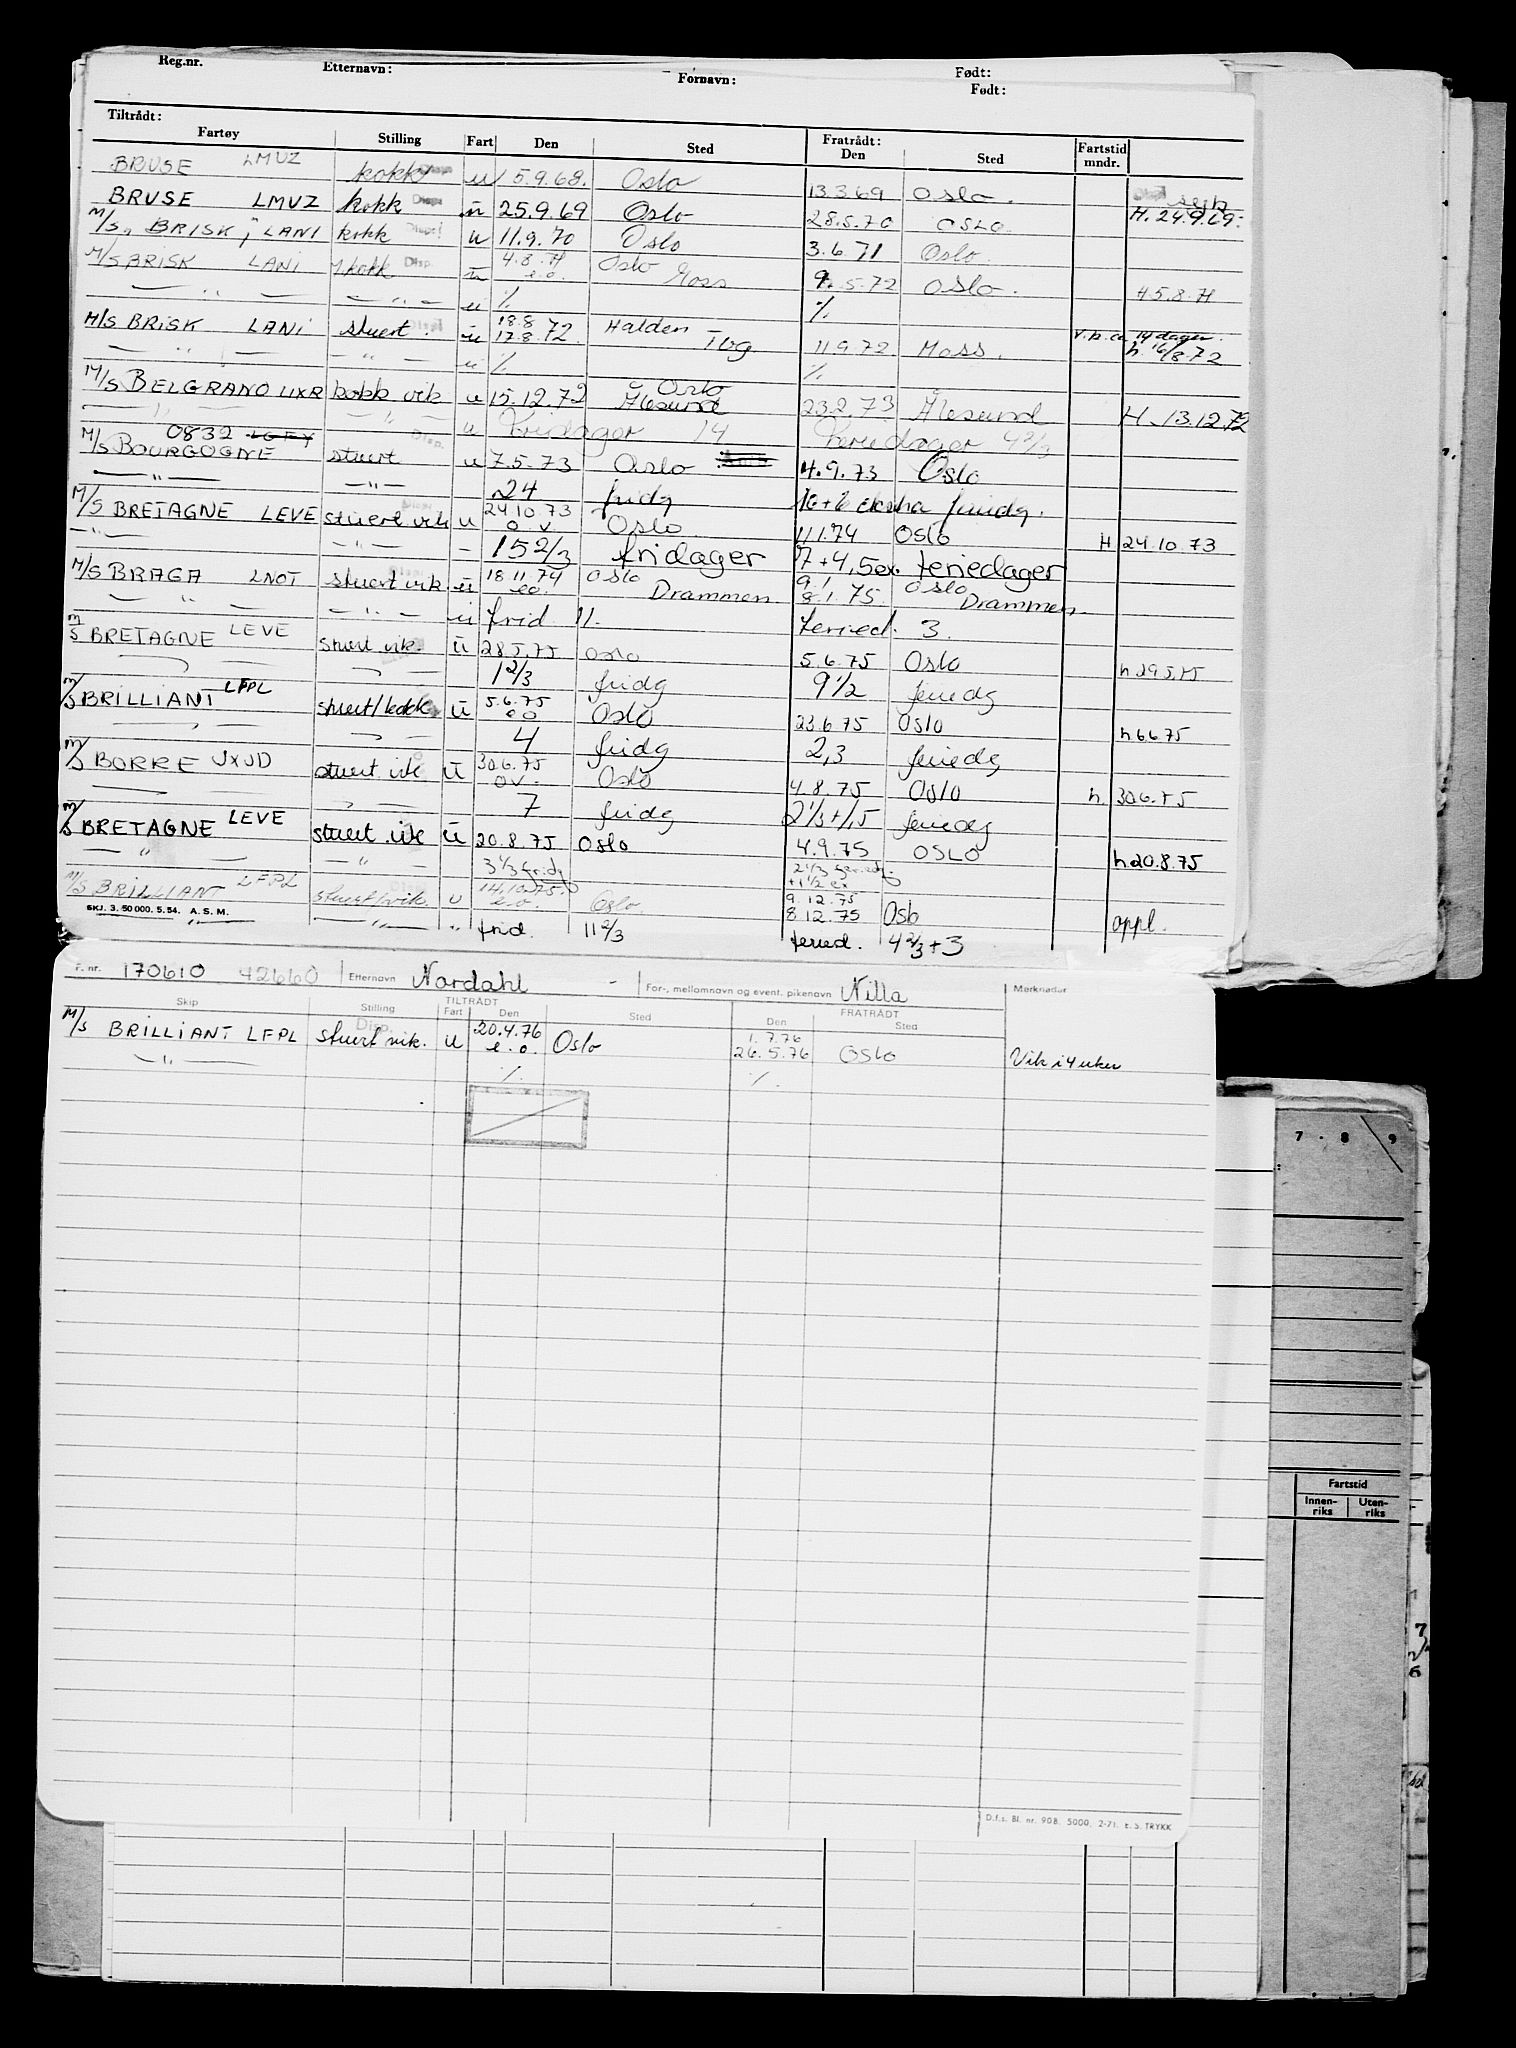 Reg.nr. Etternavn: Fornavn: Født:
Født:
Tiltrådt: Fratrådt:
Fartøy Stilling Fart Den Sted Den Sted Fartstid mndr.
BRUSE LMUZ kokk u 5.9.68. Oslo 13.3.69 Oslo.
BRUSE LMUZ kokk u 25.9.69 Oslo 28.5.70 OSLO H. 24.9.69.
M/S. BRISK, LANI kokk u 11.9.70 Oslo 3.6.71 Oslo.
M/S BRISK LANI kokk Disp. u 4.8.71 e.o. Oslo Moss 9.5.72 OSLO. 4 5.8.71
— " — — " — u % %
M/S BRISK LANI stuert. u 18.8 17.8.72. Halden Tbg 11.9.72 Moss. v.b.ca 14 dager. h. 16/8.72
— " — — " — u % %
M/S BELGRANO LIXR kokk vik u 15.12.72 Oslo Ålesund 23.2.73 Ålesund H. 13.12.72
— " — — " — u Fridager 14 Feriedager 4 2/3
M/S BOURGOGNE 0832 stuert u 7.5.73 Oslo 4.9.73 Oslo
— " — — " — 24 fridg 16+6 ekstra fridg.
M/S BRETAGNE LEVE stuert vik u 24.10.73 o.v. Oslo 11.1.74 Oslo H 24.10.73
— " — — " — 15 2/3 fridager 7+4,5ex. feriedager
M/S BRAGA LNOT stuert vik u 18.11.74 e.o. Oslo Drammen 9.1. 8.1.75. Oslo Drammen
— " — — " — u frid 11. feried. 3.
M/S BRETAGNE LEVE stuert vik. u 28.5.75 Oslo 5.6.75 Oslo h 29.5.75
— " — 1 2/3 fridg 9 1/2 feriedg
M/S BRILLIANT LFPL stuert/kokk u 5.6.75 eo Oslo 23.6.75 Oslo h 6.6.75
— " — 4 fridg 2,3 feriedg
M/S BORRE JXJD stuert vik u 30.6.75 ov. Oslo 4.8.75 Oslo h. 30.6.75
— " — 7 fridg 2 1/3+1,5 feriedg
M/S BRETAGNE LEVE stuert vik u 20.8.75 Oslo 4.9.75 OSLO h 20.8.75
— " — — " — 3 1/3 fridg 2 1/3 feriedg. +1 1/2 ex
M/S BRILLIANT LFPL stuert/vik. u 14.10.75. e.o. Oslo 9.12.75 8.12.75 Oslo oppl.
SKJ. 3. 50 000. 5. 54. A. S. M. — " — — " — " frid. 11 2/3 feried. 4 2/3+3
F. nr. 170610 42660 Etternavn Nordahl For-, mellomnavn og event. pikenavn Nilla Merknader
TILTRÅDT FRATRÅDT
Skip Stilling Fart Den Sted Den Sted
M/S BRILLIANT LFPL stuert vik. Disp. u 20.4.76 e.o. Oslo 1.7.76 26.5.76 OSLO Vik i 4 uker
— " — % %
D.f.s. Bl. nr. 908. 5000. 2-71. E. S. TRYKK
7 . 8 9
Fartstid
Innen-riks Uten-riks
7
6